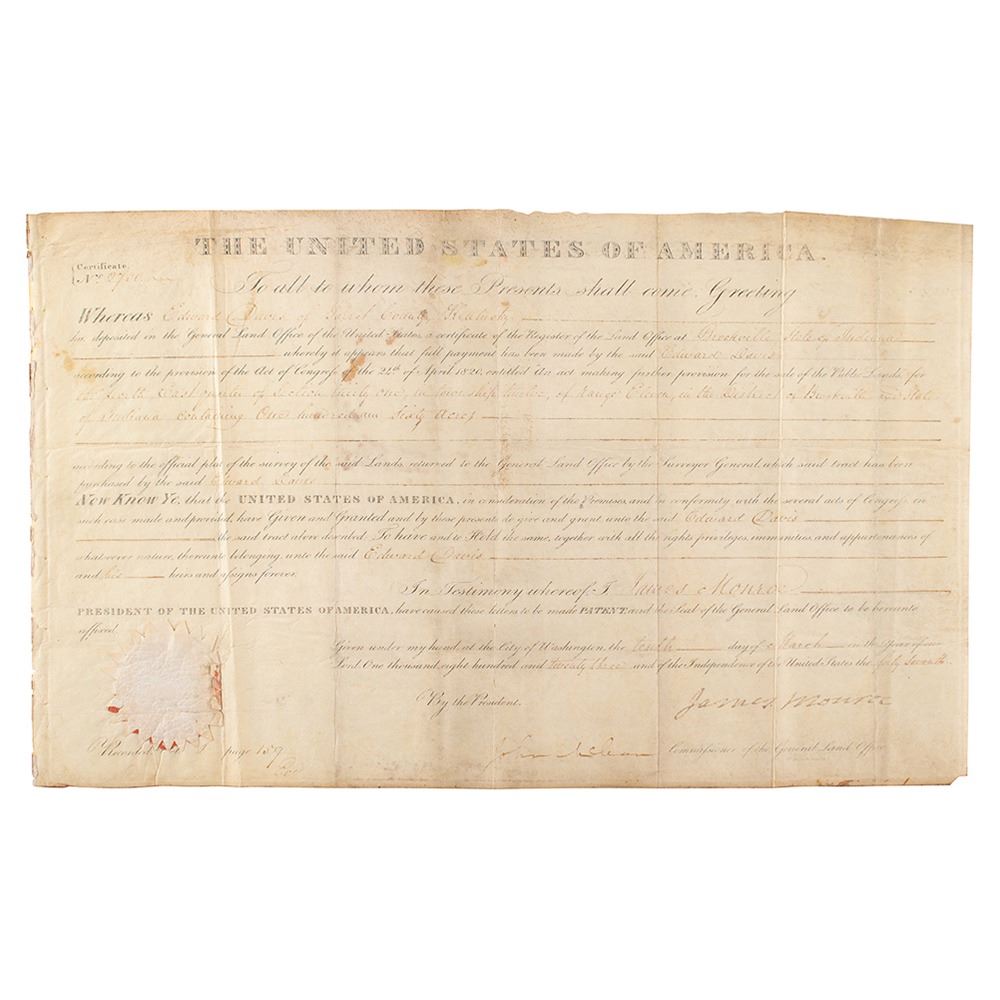 THE UNITED STATES OF AMERICA.
Certificate
No.
To all to whom these Presents shall come, Greeting
WHEREAS Edward Davis of County Kentucky
ha deposited in the General Land Office of the United States, a certificate of the Register of the Land Office at Brookville State of Indiana
whereby it appears that full payment has been made by the said Edward Davis
according to the provision of the Act of Congress of the 24th of April 1820, entitled An act making further provision for the sale of the Public Lands, for
the East quarter of Section twenty one, in township twelve, of Range Eleven, in the District of Brookville and State
of Indiana containing One hundred and Sixty Acres
according to the official plat of the survey of the said Lands, returned to the General Land Office by the Surveyor General, which said tract has been
purchased by the said Edward Davis
Now Know Ye, that the UNITED STATES OF AMERICA, in consideration of the Premises, and in conformity with the several acts of Congress, in
such case made and provided, have Given and Granted and by these presents do give and grant unto the said Edward Davis
the said tract above described: To have and to Hold the same, together with all the rights privileges, immunities, and appurtenances of
whatsoever nature, thereunto belonging, unto the said Edward Davis
and his heirs and assigns forever.
In Testimony whereof, I James Monroe
PRESIDENT OF THE UNITED STATES OF AMERICA, have caused these letters to be made PATENT and the Seal of the General Land Office to be hereunto
affixed.
Given under my hand, at the City of Washington, the tenth day of March in the Year of our
Lord One thousand, eight hundred and twenty three and of the Independence of the United States the forty seventh
By the President. James Monroe
Recorded, page 159 John McLean Commissioner of the General Land Office